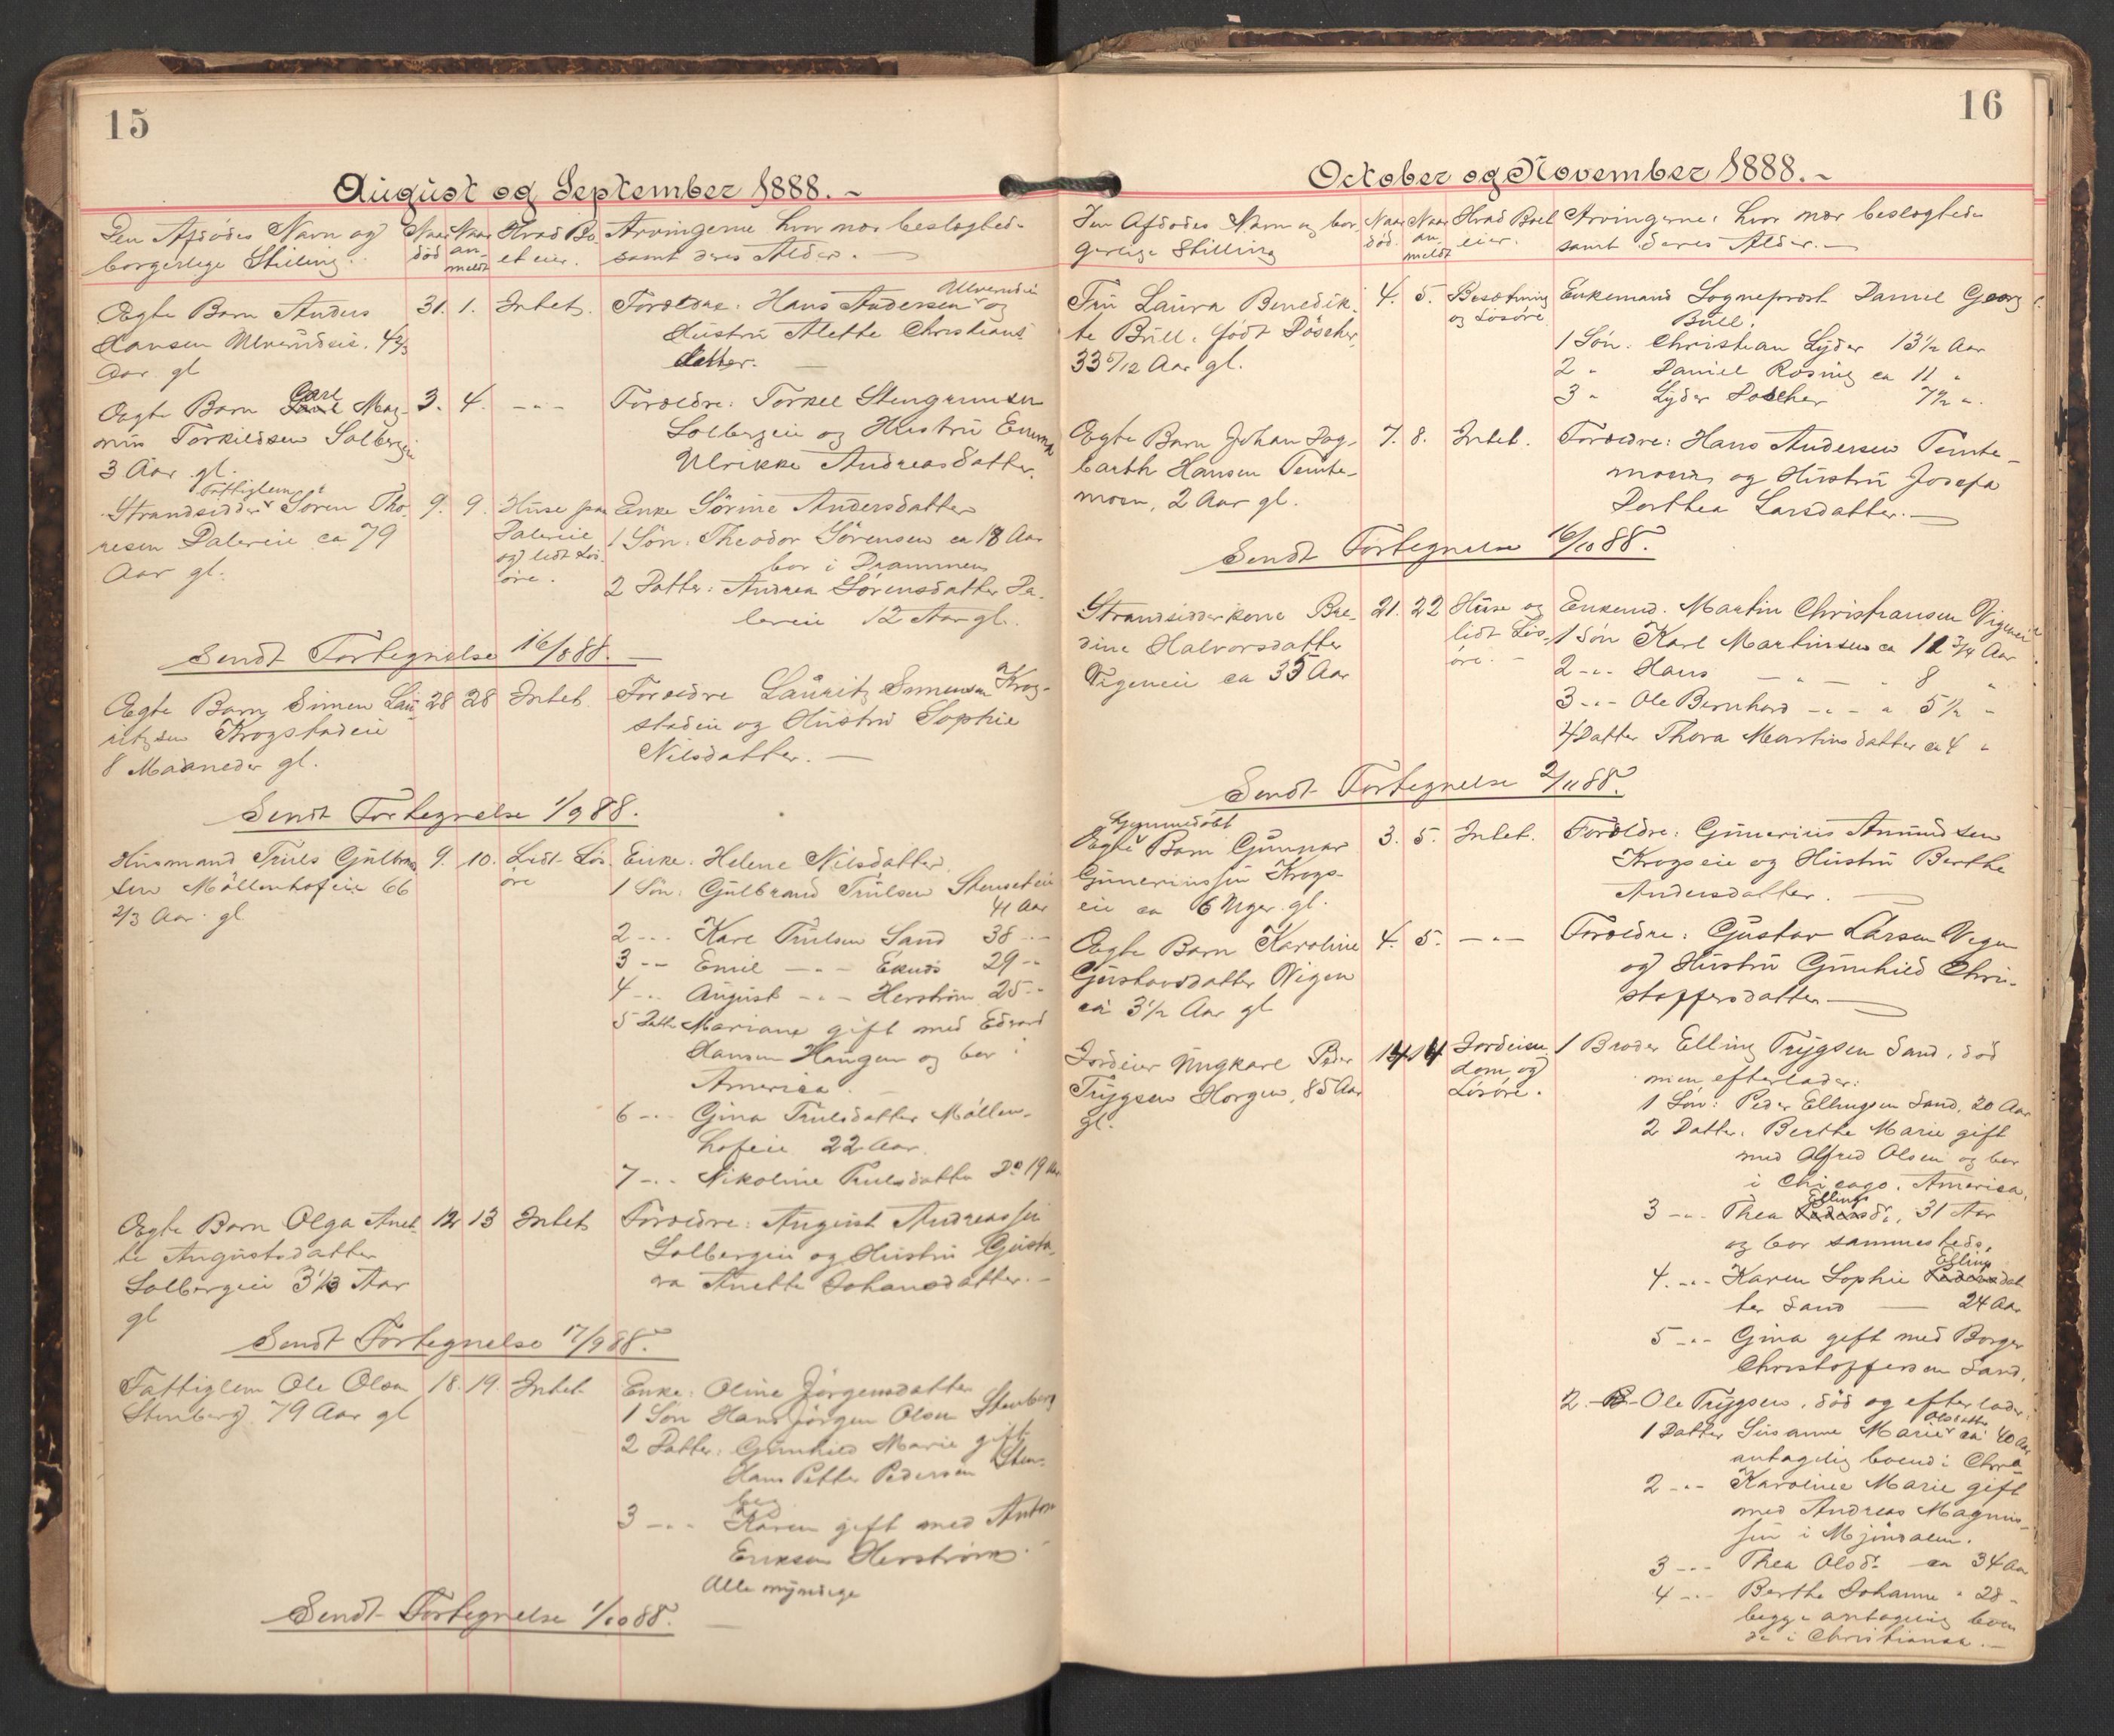 15
August og September 1888. -
Den Afdødes Navn og
borgerlige Stilling.
Naar
død
Naar
an-
meldt
Hvad Bo-
et eier.
Arvingerne hvor nær beslægtede
samt deres Alder. -
Ægte Barn Anders
Hansen Ulverudeie. 4 2/3
Aar gl
31.
1.
Intet.
Ulverudeie
Forældre: Hans Andersen og
Hustru Alette Christians
datter. -
Carl
Ægte Barn Mag-
nus Torkildsen Solbergeie
3 Aar gl.
3.
4.
- " -
Forældre: Torkel Stengrimsen
Solbergeie og Hustru Emma
Ulrikke Andreasdatter.
Fattiglem
Strandsidder Søren Tho-
resen Dalereie ca 79
Aar gl.
9.
9.
Huse paa
Dalereie
og lidt Løs-
øre.
Enke Sørine Andersdatter
1 Søn: Theodor Sørensen ca 18 Aar
bor i Drammen
2 Datter: Andrea Sørensdatter Da-
lereie 12 Aar gl.
Sendt Fortegnelse 16/8 88. -
Ægte Barn Simen Lau-
ritzsen Krogstadeie
8 Maaneder gl.
28
28
Intet.
Forældre Lauritz Simensen Krog-
stadeie og Hustru Sophie
Nilsdatter. -
Sendt Fortegnelse 1/9 88.
Husmand Truls Gulbrand
sen Møllenhofeie 66
2/3 Aar gl
9.
10.
Lidt Løs-
øre
Enke: Helene Nilsdatter
1 Søn: Gulbrand Trulsen Stenseteie
41 Aar
2 - " - Karl Trulsen Sand 38 - " -
3 - " - Emil - " - Eknes 29 - " -
4 - " - August - " - Herstrøm 25 - " -
5 Datter Mariane gift med Edvard
Hansen Haugen og bor i
America. -
6 - " - Gina Trulsdatter Møllen-
hofeie 22 Aar.
7 - " - Nikoline Trulsdatter Do 19 Aar
Ægte Barn Olga Anet-
te Augustsdatter
Solbergeie 3 1/3 Aar
gl
12
13
Intet
Forældre: August Andreassen
Solbergeie og Hustru Gusta-
va Anette Johansdatter. -
Sendt Fortegnelse 17/9 88.
Fattiglem Ole Olsen
Stenberg. 79 Aar gl
18.
19.
Intet
Enke: Oline Jørgensdatter
1 Søn Hans Jørgen Olsen Stenberg
2 Datter: Gunhild Marie gift
Hans Petter Pedersen Sten-
berg
3 - " - Karen gift med Anton
Eriksen Herstrøm.
Alle myndige
Sendt Fortegnelse 1/10 88. -
16
October og November 1888. -
Den Afdødes Navn og bor-
gerlige Stilling
Naar
død.
Naar
an-
meldt
Hvad Boet
eier.
Arvingerne: hvor nær beslægtede
samt deres Alder. -
Fru Laura Benedik-
te Bull, født Döscher,
33 5/12 Aar gl.
4.
5.
Besætning
og Løsøre
Enkemand Sogneprest Daniel Georg
Bull.
1 Søn. Christian Lyder 13 1/2 Aar
2 " Daniel Rosing ca 11 "
3 " Lyder Doscher 7 1/2 "
Ægte Barn Johan Dag-
barth Hansen Temte-
moen, 2 Aar gl.
7.
8.
Intet.
Forældre: Hans Andersen Temte-
moen, og Hustru Josefa
Dorthea Larsdatter. -
Sendt Fortegnelse 16/10 88.
Strandsidderkone Bre-
dine Halvorsdatter
Vigeneie ca 35 Aar
21.
22
Huse og
lidt Løs-
øre. -
Enkemd. Martin Christiansen Vigeneie
1 Søn Karl Martinsen ca 12 3/4 Aar
2 - " - Hans - " - " 8 "
3 - " - Ole Bernhard - " - " 5 1/2 "
4 Datter Thora Martinsdatter ca 4 "
Sendt Fortegnelse 2/11 88.
hjemmedøbt
Ægte Barn Gunnar
Gunerius sen Krogs-
eie ca 6 Uger gl.
3.
5.
Intet.
Forældre: Gunerius Amundsen
Krogseie og Hustru Berthe
Andersdatter. -
Ægte Barn Karoline
Gustavsdatter Vigen
ca 3 1/2 Aar gl
4.
5.
- " -
Forældre: Gustav Larsen Vigen
og Hustru Gunhild Chri-
stoffersdatter -
Jordeier Ungkarl Peder
Trygsen Horgen, 85 Aar
gl.
14
14
Jordeien-
dom og
Løsøre.
1 Broder Elling Trygsen Sand, død
men efterlader:
1 Søn: Peder Ellingsen Sand, 20 Aar
2 Datter. Berthe Marie gift
med Alfred Olsen og bor
i Chicago, America,
Ellings
3 - " - Thea Pedersd., 31 Aar
og bor sammesteds,
Ellings
4. - " - Karen Sophie Pedersdat
ter Sand - 24 Aar
5 - " - Gina gift med Borger
Christoffersen Sand,
2. - B - Ole Trygsen, død og efterlader:
Olsdatter
1 Datter Susanne Marie ca 40 Aar
antagelig boend i Chra
2 - " - Karoline Marie gift
med Andreas Magnus-
sen i Mjøndalen.
3 - " - Thea Olsd. ca 34 Aar
4 - " - Berthe Johanne " 28 -
begge antagelig boen
de i Christiania. -